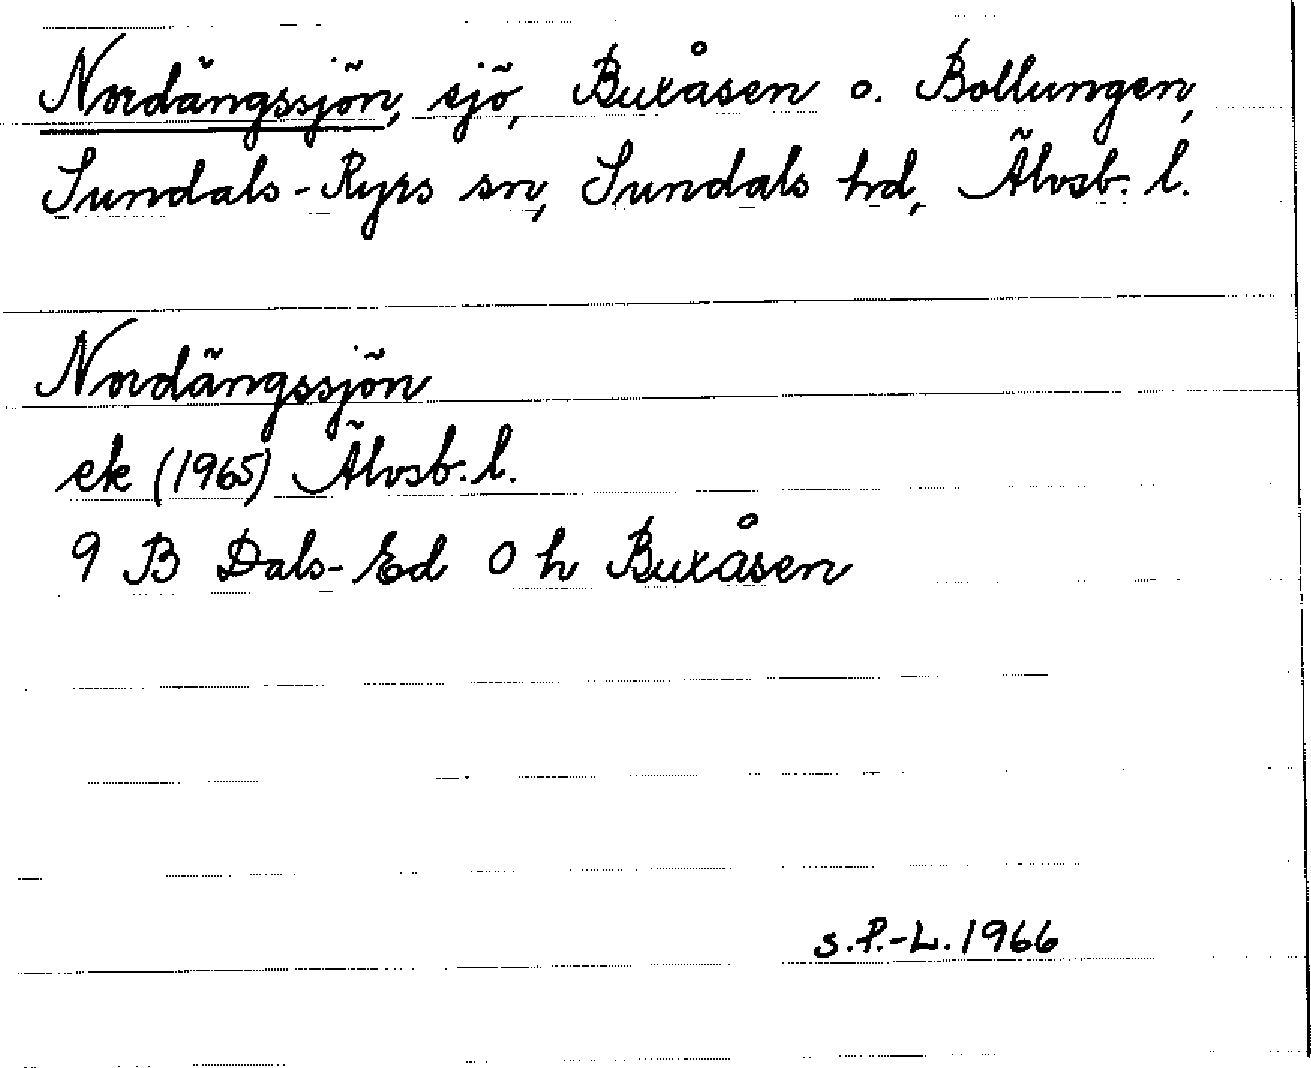 Nordängssjön, sjö, Buxåsen o. Bollungen,
Sundals-Ryrs sn, Sundals hd, Älvsb. l.
Nordängssjön
ek (1965) Älvsb. l.
9 B Dals-Ed O h Buxåsen
S.P.-L. 1966